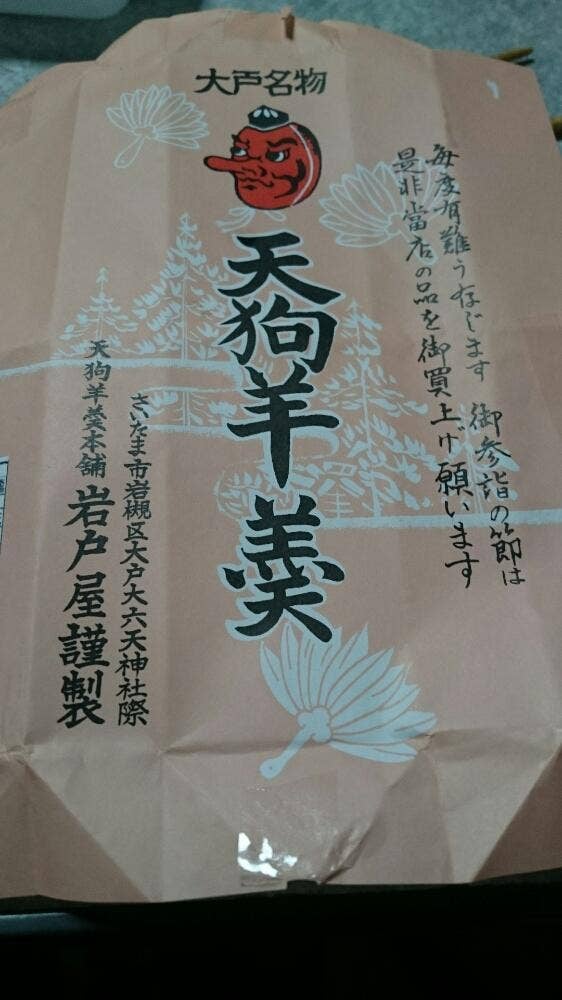 大戸名物
毎度有難う存じます 御参詣の節は
是非當店の品を御買上げ願います
天狗羊羹
さいたま市岩槻区大戸大六天神社際
天狗羊羹本舗 岩戸屋謹製